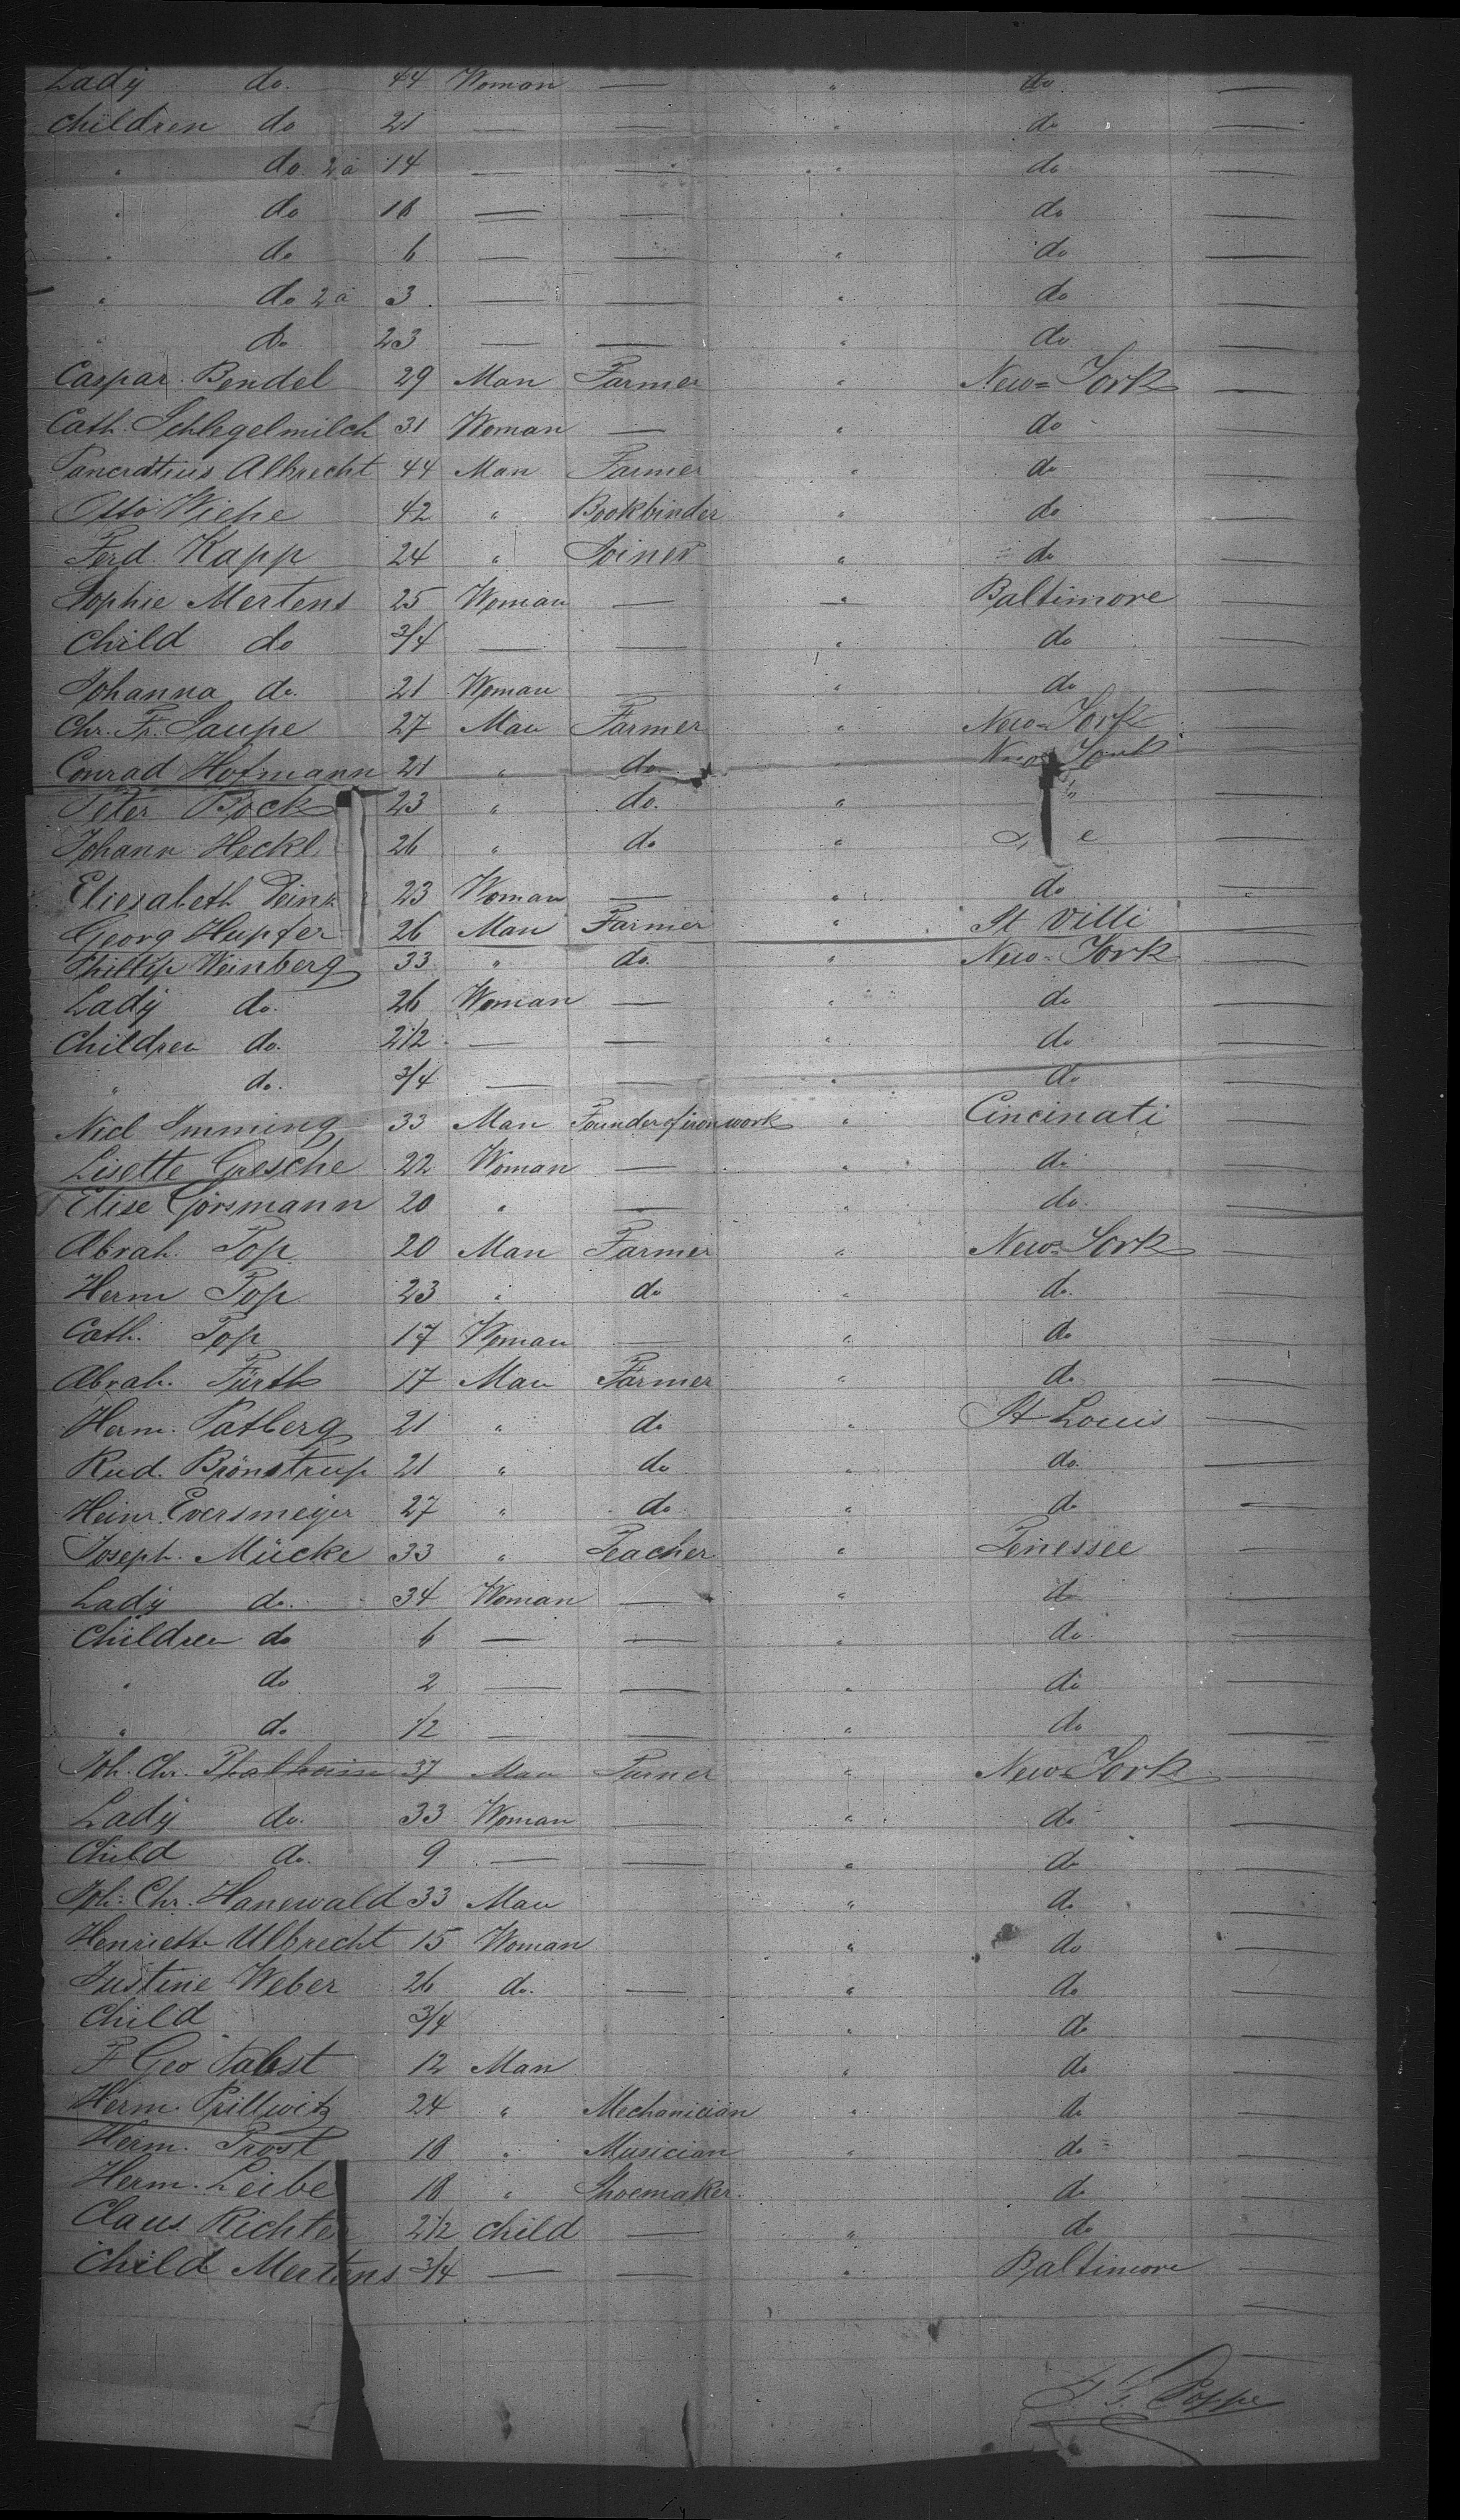 Lady do. 44 Woman — " do.
Children do 21 — — " do
" do. 2 à 14 — — " do
" do 18 — — " do
" do 6 — — " do
" do 2 à 3 — — " do
" do. 23 — — " do
Caspar Bendel 29 Man Farmer " New=York
Cath. Schlegelmilch 31 Woman — " do
Pancratius Albrecht 44 Man Farmer " do
Otto Wiehe 42 " Bookbinder " do
Ferd. Kapp 24 " Joiner " do
Sophie Mertens 25 Woman — " Baltimore
Child do 3/4 — — " do
Johanna do. 21 Woman — " do
Chr. Fr. Saupe 27 Man Farmer " New=York
Conrad Hofmann 21 " do. " New York
Peter Bock 23 " do. " "
Johann Heckl 26 " do "
Eliesabeth 23 Woman — " do
Georg Hupfer 26 Man Farmer " St Ville
Phillip Weinberg 33 " do. " New=York
Lady do. 26 Woman — " do
Children do. 2 1/2 — — " do
" do. 3/4 — — " do
33 Man Founder of iron work " Cincinati
Lisette Goesche 22 Woman — " do
Elise Görsmann 20 " — " do.
Abrah. Pop 20 Man Farmer " New=York
Herm Pop 23 " do " do.
Cath. Pop 17 Woman — " do
Abrah. Fürth 17 Man Farmer " do
Herm. Patberg 21 " do " St Louis
Rud. Brönstrup 21 " do " do.
Heinr. Eversmeyer 27 " do " do
Joseph. Mücke 33 " Teacher " Tenessee
Lady do. 34 Woman — " do
Children do 6 — — " do.
" do 2 — — " do
" do. 1/2 — — " do
Joh. Chr. 37 Man " New=York
Lady do. 33 Woman — " do
Child do. 9 — — " do
Joh. Chr. Hanewald 33 Man " do
Henriette Ulbrecht 15 Woman " do
Justine Weber 26 do. — " do
Child 3/4 " do
F Geo Pabst 12 Man " do
Herm. Prillwitz 24 " Mechanician " do
Herm. Prost 18 " Musician " do
Herm. Leibe 18 " Shoemaker. do
Claus Richter 2 1/2 child — " do
Child Mertens 3/4 — — " Baltimore
Poppe